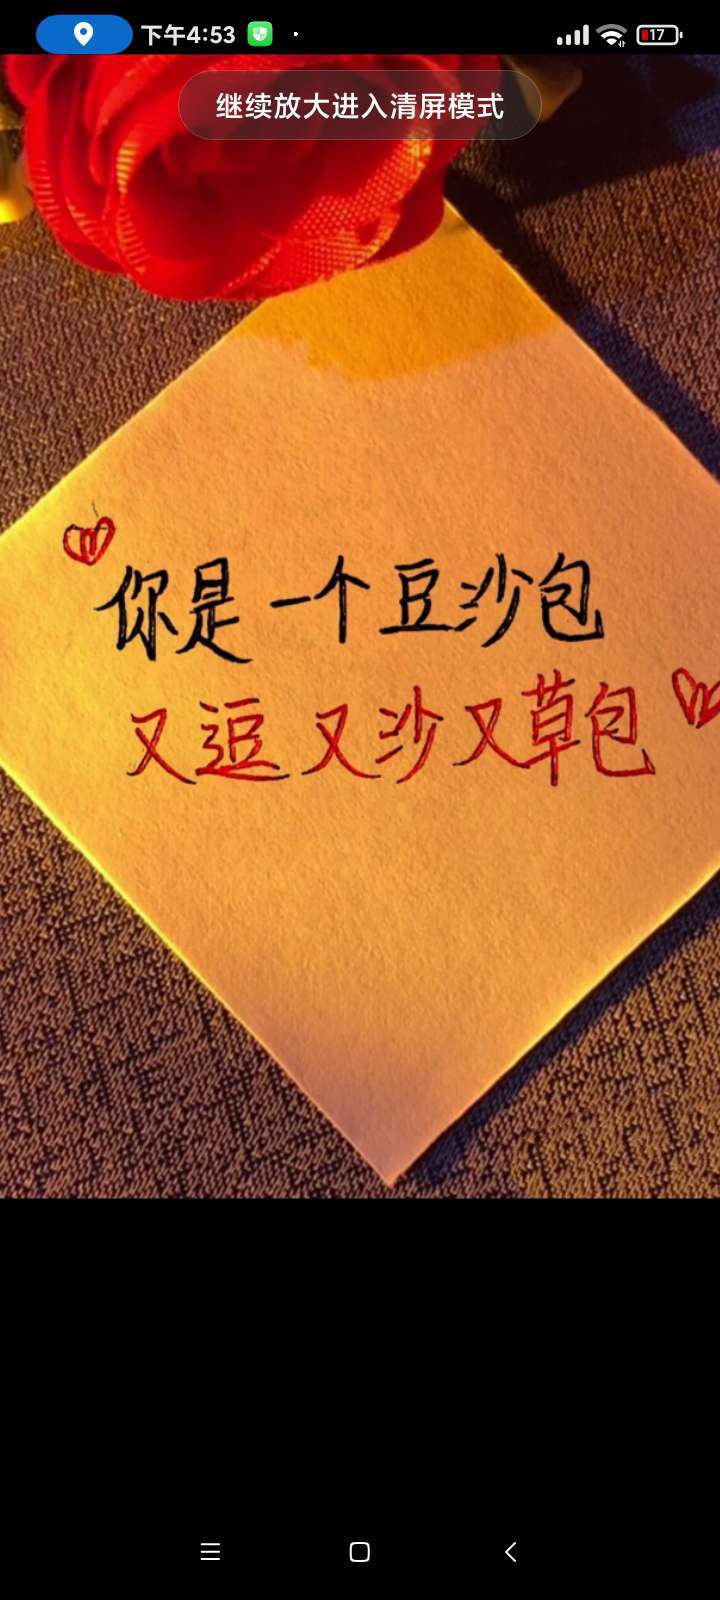 下午4:53
17
继续放大进入清屏模式
你是一个豆沙包
又逗又沙又草包